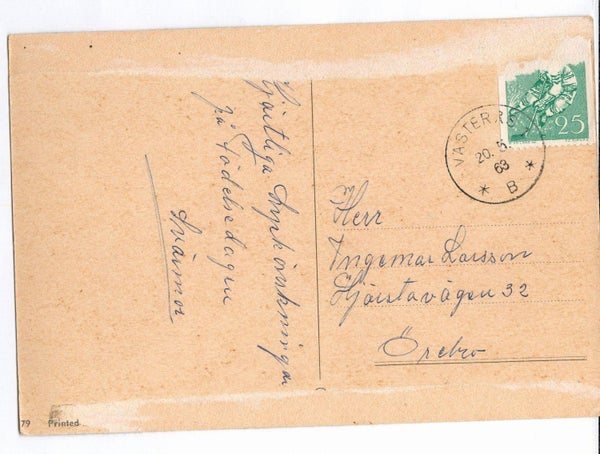 Hjärtliga Lyckönskningar
på Födelsedagen
Svärmor
VÄSTERÅS
20. 5.
63
* B *
25
Herr
Ingemar Larsson
Hjärstavägen 32
Örebro
79 Printed